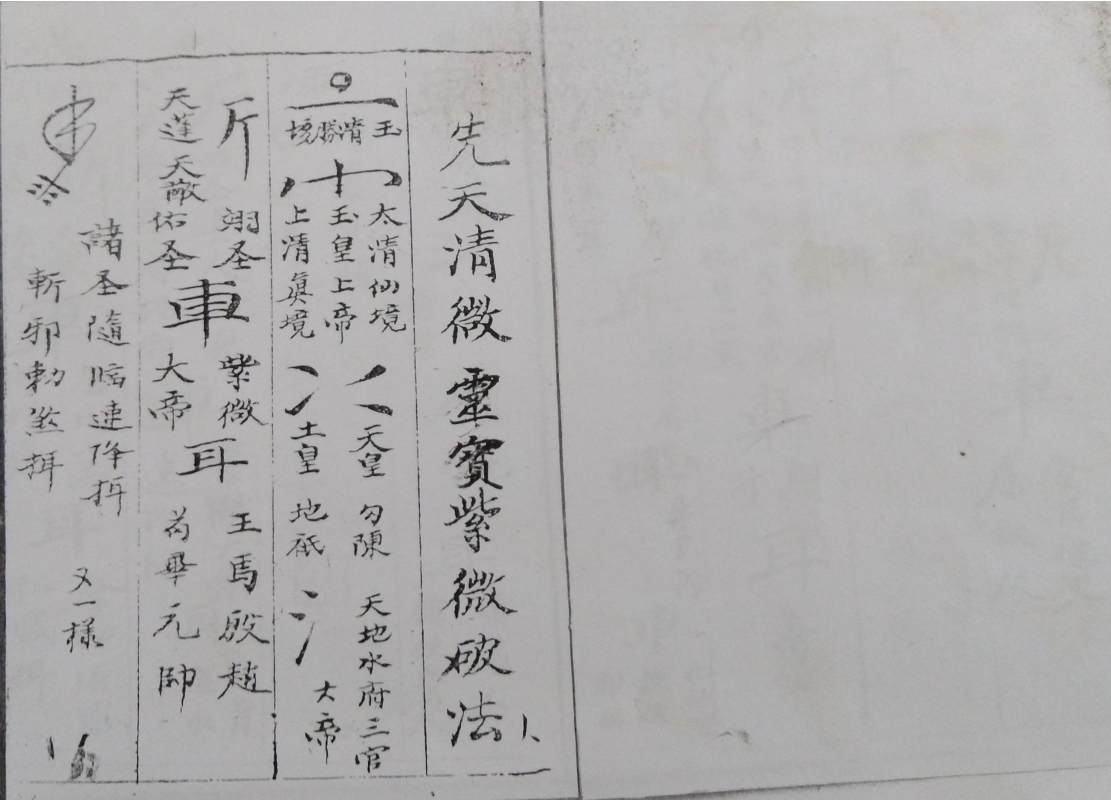 先天清微靈寶紫微破法
玉清勝境
太清仙境
玉皇上帝
上清眞境
天皇 勾陳 天地水府三官
大帝
土皇 地祇
斤
天蓬天敵
翊圣
佑圣
車
紫微
大帝
耳
王馬殷趙
苟畢元帥
諸圣隨臨速降揖
斬邪勅煞揖
又一樣